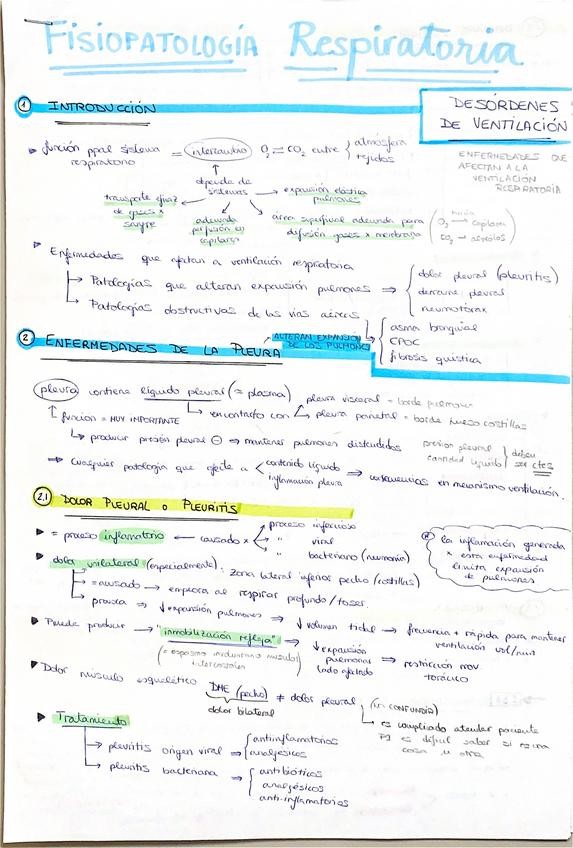 FISIOPATOLOGÍA RESPIRATORIA
① INTRODUCCIÓN
DESÓRDENES
DE VENTILACIÓN
ENFERMEDADES QUE
AFECTAN A LA
VENTILACIÓN
RESPIRATORIA
función ppal sistema = intercambio O₂ ⇌ CO₂ entre { atmósfera
respiratorio tejidos
depende de
sistemas → expansión elástica
pulmones
transporte eficaz
de gases x
sangre
adecuada
perfusión a
capilares
área superficial adecuada para
difusión gases x membrana
O₂ → capilares
CO₂ → alveolos
Enfermedades que afectan a ventilación respiratoria
→ Patologías que alteran expansión pulmones ⇒ { dolor pleural (pleuritis)
derrame pleural
neumotórax
→ Patologías obstructivas de las vías aéreas
{ asma bronquial
EPOC
fibrosis quística
② ENFERMEDADES DE LA PLEURA
ALTERAN EXPANSIÓN
DE LOS PULMONES
pleura contiene líquido pleural (= plasma)
→ en contacto con
pleura visceral = borde pulmones
pleura parietal = borde hueso costillas
función = MUY IMPORTANTE
→ producir presión pleural ⊖ ⇒ mantener pulmones distendidos
presión pleural
cantidad líquido } deben
ser ctes
Cualquier patología que afecte a < contenido líquido ⇒ consecuencias en mecanismo ventilación.
inflamación pleura
2.1 DOLOR PLEURAL O PLEURITIS
= proceso inflamatorio ← causado x
proceso infeccioso
" viral
" bacteriano (neumonía)
* la inflamación generada
x esta enfermedad
limita expansión
de pulmones
dolor unilateral (especialmente): zona lateral inferior pecho (costillas)
→ = causado → empeora al respirar profundo/toser.
→ provoca ⇒ ↓ expansión pulmones ⇒ ↓ volumen tidal → frecuencia + rápida para mantener
ventilación vol/min
Puede producir → "inmobilización refleja" ⇒ ↓ expansión
pulmonar
lado afectado ⇒ restricción mov.
torácico
(= espasmo involuntario músculos
intercostales)
Dolor músculo esquelético DME (pecho) ≠ dolor pleural
dolor bilateral
(NO CONFUNDIR)
→ es complicado atender paciente
PQ es difícil saber si es una
cosa u otra
Tratamiento
→ pleuritis origen viral ⇒ { antiinflamatorios
analgésicos
→ pleuritis bacteriana ⇒ { antibióticos
analgésicos
anti-inflamatorios